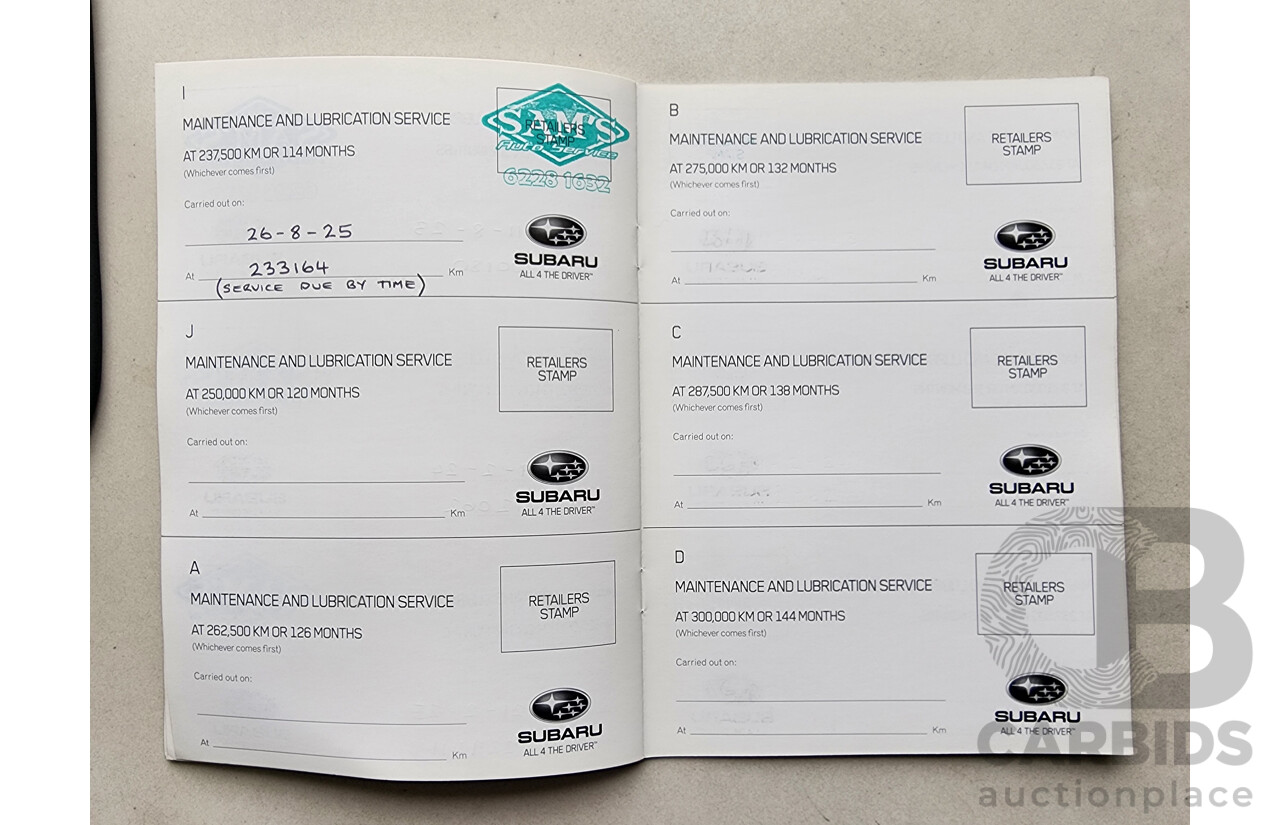 I
MAINTENANCE AND LUBRICATION SERVICE
AT 237,500 KM OR 114 MONTHS
(Whichever comes first)
RETAILERS
STAMP
SAM'S
Auto Service
6228 1632
Carried out on:
26-8-25
At 233164 Km
(SERVICE DUE BY TIME)
SUBARU
ALL 4 THE DRIVER™
J
MAINTENANCE AND LUBRICATION SERVICE
AT 250,000 KM OR 120 MONTHS
(Whichever comes first)
RETAILERS
STAMP
Carried out on:
At Km
SUBARU
ALL 4 THE DRIVER™
A
MAINTENANCE AND LUBRICATION SERVICE
AT 262,500 KM OR 126 MONTHS
(Whichever comes first)
RETAILERS
STAMP
Carried out on:
At Km
SUBARU
ALL 4 THE DRIVER™
B
MAINTENANCE AND LUBRICATION SERVICE
AT 275,000 KM OR 132 MONTHS
(Whichever comes first)
RETAILERS
STAMP
Carried out on:
At Km
SUBARU
ALL 4 THE DRIVER™
C
MAINTENANCE AND LUBRICATION SERVICE
AT 287,500 KM OR 138 MONTHS
(Whichever comes first)
RETAILERS
STAMP
Carried out on:
At Km
SUBARU
ALL 4 THE DRIVER™
D
MAINTENANCE AND LUBRICATION SERVICE
AT 300,000 KM OR 144 MONTHS
(Whichever comes first)
RETAILERS
STAMP
Carried out on:
At Km
SUBARU
ALL 4 THE DRIVER™
CARBIDS
auctionplace